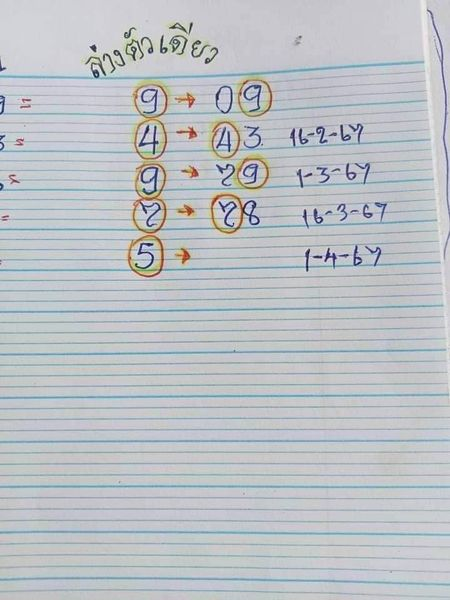 ล่างตัวเดียว
9 = 9 → 09
3 = 4 → 43 16-2-67
= 9 → 79 1-3-67
= 7 → 78 16-3-67
5 → 1-4-67